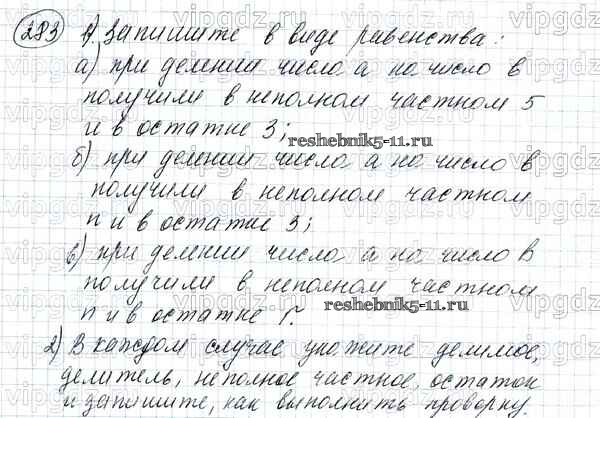 283 1. Запишите в виде равенства:
а) при делении числа а на число в
получили в неполном частном 5
и в остатке 3;
reshebnik5-11.ru
б) при делении числа а на число в
получили в неполном частном
n и в остатке 3;
в) при делении числа а на число в
получили в неполном частном
n и в остатке r.
reshebnik5-11.ru
2) В каждом случае укажите делимое,
делитель, неполное частное, остаток
и запишите, как выполнить проверку.